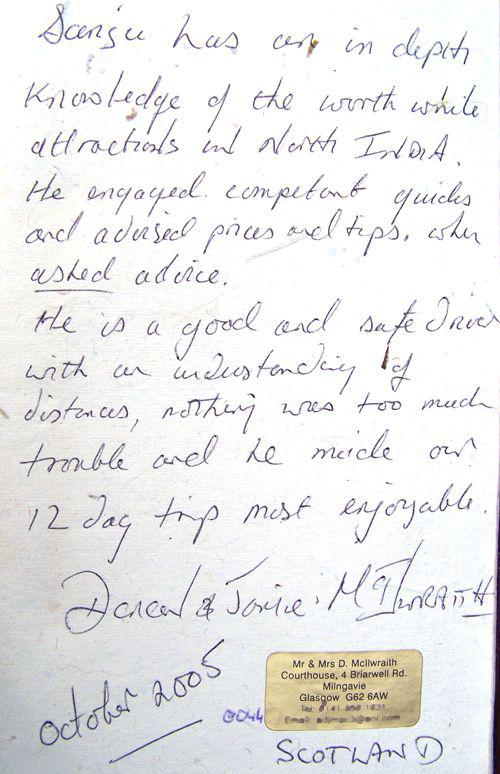 Sanju has an in depth
knowledge of the worth while
attractions in North INDIA.
He engaged competant guides
and advised prices and tips, when
asked advice.
He is a good and safe driver
with an understanding of
distances, nothing was too much
trouble and he made our
12 day trip most enjoyable.
& Janice McIlWRAITH
October 2005
0044
Mr & Mrs D. McIlwraith
Courthouse, 4 Briarwell Rd.
Milngavie
Glasgow G62 6AW
Tel:
E-mail:
SCOTLAND